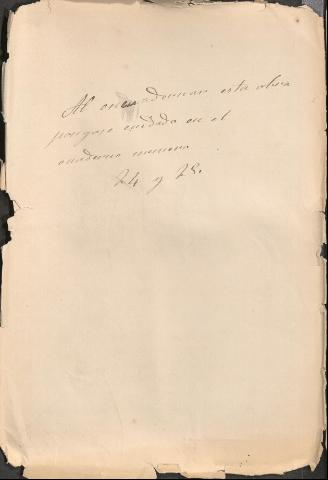 Al encuadernar esta obra
pongase cuidado en el
cuaderno numero
24 y 25.